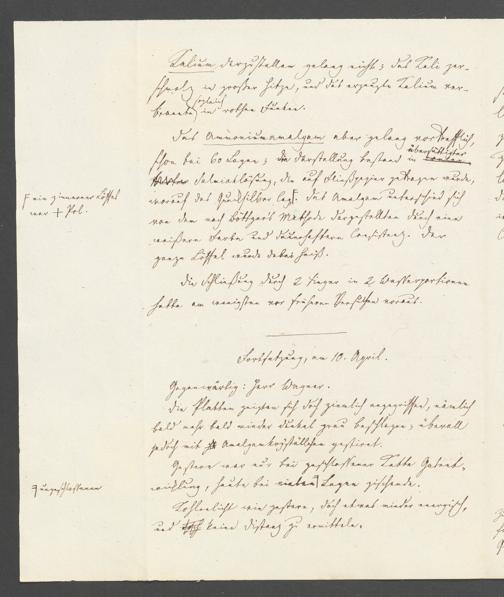 Kalium darzustellen gelang nicht; das Kali zer-
schmolz in großer Hitze, und das erzeugte Kalium ver-
brannte sogleich in rothen Funken.
Das Ammoniumamalgam aber gelang vortrefflich,
schon bei 60 Lagen; die Darstellung bestand in übersättigter
Salmiaklösung, die auf Fließpapier getragen wurde,
worauf das Quecksilber lag. Das Amalgam unterschied sich
von dem nach Böttger's Methode dargestellten durch eine
weißere Farbe und dauerhaftere Consistenz. Der
ganze Löffel wurde dabei heiß.
ein zinnerner Löffel
war + Pol.
Die Schließung durch 2 Finger in 2 Wasserportionen
hatte am wenigsten vor früheren Versuchen voraus.
Fortsetzung, am 10. April.
Gegenwärtig: Herr Wagner.
Die Platten zeigten sich doch ziemlich angegriffen, nämlich
bald mehr bald minder dunkel grau beschlagen; überall
jedoch mit Amalgamkryställchen gestirnt.
Gestern war nur bei geschlossener Kette Gasent-
wicklung, heute bei vielen Lagen zischende.
ungeschlossenen
Kohlenlicht wie gestern, doch etwas minder energisch,
und keine Distanz zu ermitteln.